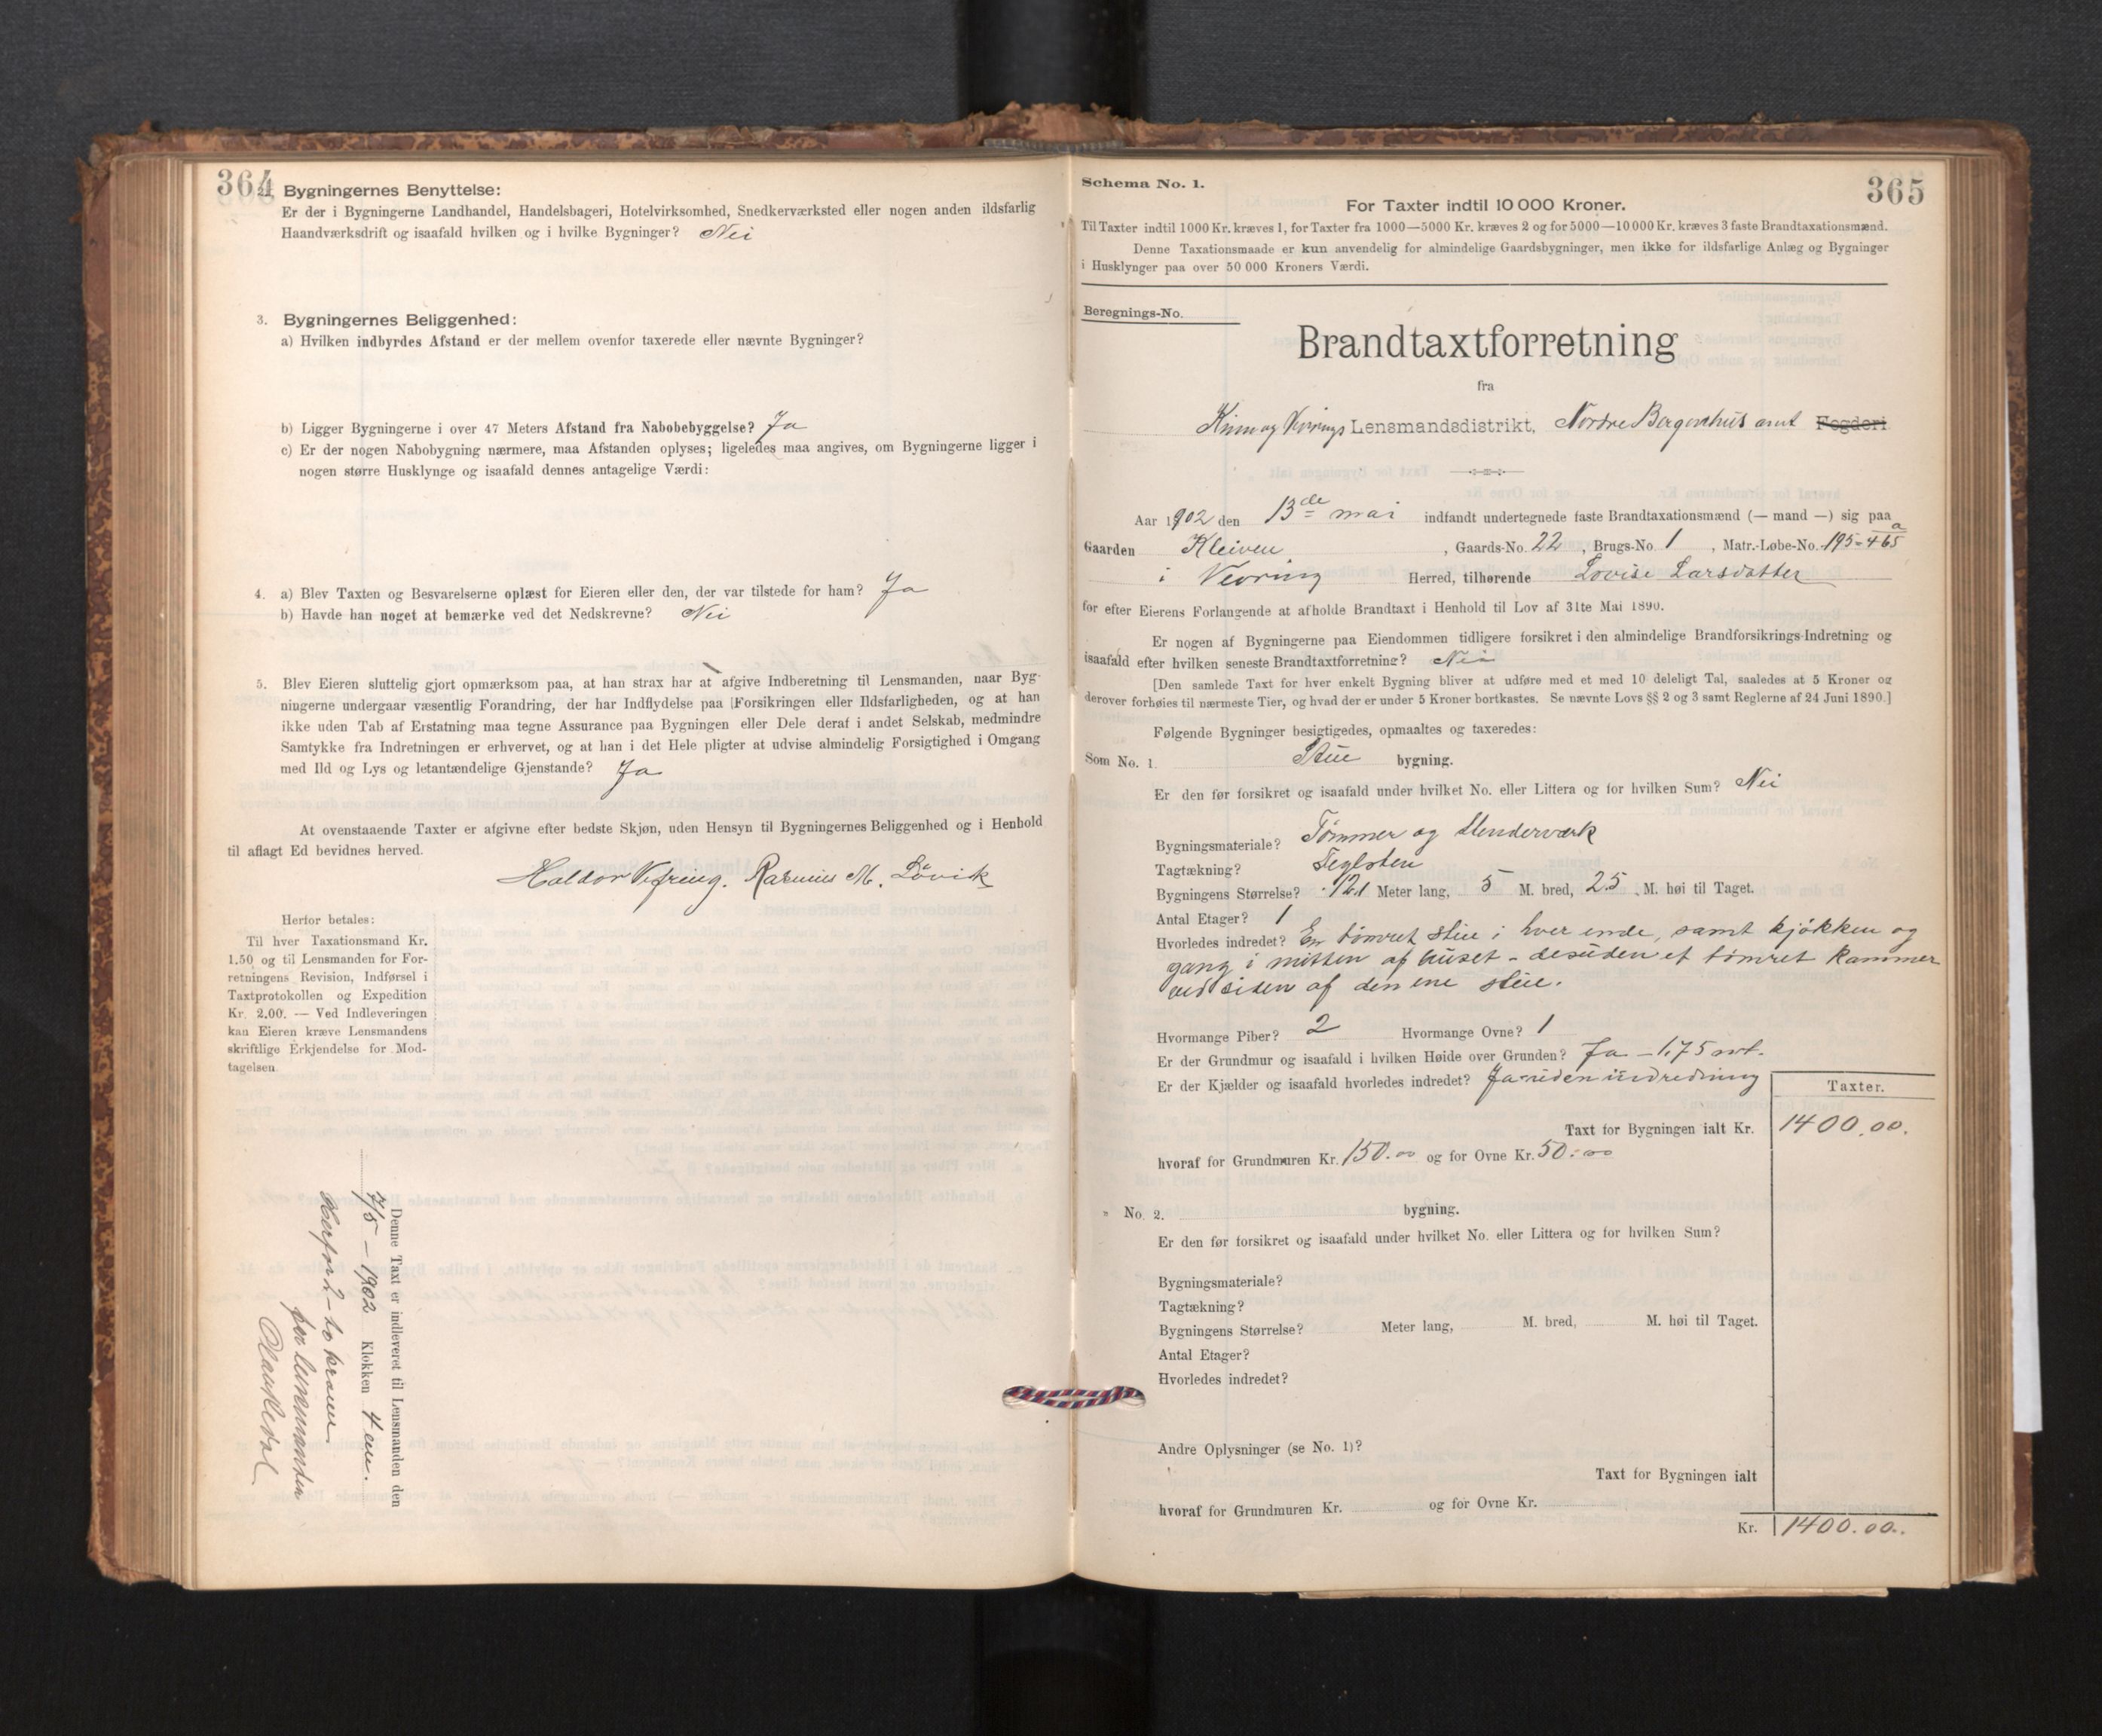 364
2. Bygningernes Benyttelse:
Er der i Bygningerne Landhandel, Handelsbageri, Hotelvirksomhed, Snedkerværksted eller nogen anden ildsfarlig
Haandværksdrift og isaafald hvilken og i hvilke Bygninger? Nei
3. Bygningernes Beliggenhed:
a) Hvilken indbyrdes Afstand er der mellem ovenfor taxerede eller nævnte Bygninger?
b) Ligger Bygningerne i over 47 Meters Afstand fra Nabobebyggelse? Ja
c) Er der nogen Nabobygning nærmere, maa Afstanden oplyses; ligeledes maa angives, om Bygningerne ligger i
nogen større Husklynge og isaafald dennes antagelige Værdi:
4. a) Blev Taxten og Besvarelserne oplæst for Eieren eller den, der var tilstede for ham? Ja
b) Havde han noget at bemærke ved det Nedskrevne? Nei
5. Blev Eieren sluttelig gjort opmærksom paa, at han strax har at afgive Indberetning til Lensmanden, naar Byg-
ningerne undergaar væsentlig Forandring, der har Indflydelse paa Forsikringen eller Ildsfarligheden, og at han
ikke uden Tab af Erstatning maa tegne Assurance paa Bygningen eller Dele deraf i andet Selskab, medmindre
Samtykke fra Indretningen er erhvervet, og at han i det Hele pligter at udvise almindelig Forsigtighed i Omgang
med Ild og Lys og letantændelige Gjenstande? Ja
At ovenstaaende Taxter er afgivne efter bedste Skjøn, uden Hensyn til Bygningernes Beliggenhed og i Henhold
til aflagt Ed bevidnes herved.
Haldor Vefring. Rasmus M. Lövik
Herfor betales:
Til hver Taxationsmand Kr.
1.50 og til Lensmanden for For-
retningens Revision, Indførsel i
Taxtprotokollen og Expedition
Kr. 2.00. — Ved Indleveringen
kan Eieren kræve Lensmandens
skriftlige Erkjendelse for Mod-
tagelsen.
Denne Taxt er indleveret til Lensmanden den
7/5 - 1902 Klokken 4 em.
Herfor 2 - to kroner
for lensmanden
365
Schema No. 1.
For Taxter indtil 10 000 Kroner.
Til Taxter indtil 1000 Kr. kræves 1, for Taxter fra 1000—5000 Kr. kræves 2 og for 5000—10 000 Kr. kræves 3 faste Brandtaxationsmænd.
Denne Taxationsmaade er kun anvendelig for almindelige Gaardsbygninger, men ikke for ildsfarlige Anlæg og Bygninger
i Husklynger paa over 50 000 Kroners Værdi.
Beregnings-No.
Brandtaxtforretning
fra
Kinn og Vevrings Lensmandsdistrikt, Nordre Bergenhus amt Fogderi
Aar 1902 den 13de mai indfandt undertegnede faste Brandtaxationsmænd (— mand —) sig paa
Gaarden Kleiven, Gaards-No. 22, Brugs-No. 1, Matr.-Løbe-No. 195-465 a
i Vevring Herred, tilhørende Lovise Larsdatter
for efter Eierens Forlangende at afholde Brandtaxt i Henhold til Lov af 31te Mai 1890.
Er nogen af Bygningerne paa Eiendommen tidligere forsikret i den almindelige Brandforsikrings-Indretning og
isaafald efter hvilken seneste Brandtaxtforretning? Nei
[Den samlede Taxt for hver enkelt Bygning bliver at udføre med et med 10 deleligt Tal, saaledes at 5 Kroner og
derover forhøies til nærmeste Tier, og hvad der er under 5 Kroner bortkastes. Se nævnte Lovs §§ 2 og 3 samt Reglerne af 24 Juni 1890.]
Følgende Bygninger besigtigedes, opmaaltes og taxeredes:
Som No. 1. Stue bygning.
Er den før forsikret og isaafald under hvilket No. eller Littera og for hvilken Sum? Nei
Bygningsmateriale? Tømmer og Stenderværk
Tagtækning? Teglsten
Bygningens Størrelse? 12.1 Meter lang, 5 M. bred, 2.5 M. høi til Taget.
Antal Etager? 1
Hvorledes indredet? En tømret stue i hver ende, samt kjøkken og
gang i mitten af huset - desuden et tømret kammer
ved siden af den ene stue.
Hvormange Piber? 2 Hvormange Ovne? 1
Er der Grundmur og isaafald i hvilken Høide over Grunden? Ja - 1.75 mt.
Er der Kjælder og isaafald hvorledes indredet? Ja - uden indredning
Taxter.
Taxt for Bygningen ialt Kr. 1400.00.
hvoraf for Grundmuren Kr. 150.00 og for Ovne Kr. 50.00
" No. 2. bygning.
Er den før forsikret og isaafald under hvilket No. eller Littera og for hvilken Sum?
Bygningsmateriale?
Tagtækning?
Bygningens Størrelse? Meter lang, M. bred, M. høi til Taget.
Antal Etager?
Hvorledes indredet?
Andre Oplysninger (se No. 1)?
Taxt for Bygningen ialt
hvoraf for Grundmuren Kr. og for Ovne Kr.
Kr. 1400.00.